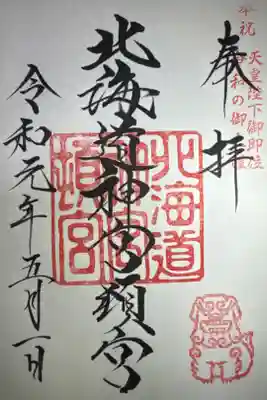 奉祝
天皇陛下御即位
奉拝
北海道神宮頓宮
北海道
神宮
頓宮
令和元年五月一日